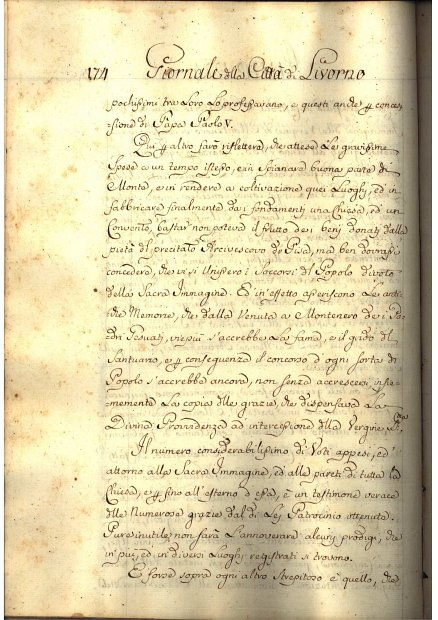 174 Giornali della Città di Livorno
pochissimi tra Loro Lo professavano, e questi anche p conces-
sione di Papa Paolo V.
Qui p altro farò riflettere, che attese Le gravissime
Spese a un tempo istesso, e in Spianare buona parte di
Monte, e in rendere a coltivazione quei Luoghi, ed in
fabbricare finalmente dai fondamenti una Chiesa, ed un
Convento, bastar non poteva il frutto dei beni donati dalla
pietà del precitato Arcivescovo di Pisa, ma ben dovrassi
concedere, che vi si Unissero i Soccorsi del Popolo divoto
della Sacra Immagine. Ed in effetto asseriscono Le anti-
che Memorie, che dalla Venuta a Montenero dei Pa-
dri Gesuati, viepiù s'accrebbe La fama, e il grido del
Santuario, e p conseguenza il concorso d'ogni sorta di
Popolo s'accrebbe ancora, non senza accrescersi insie-
memente La copia delle grazie, che dispensava La
Divina Providenza ad intercessione della Vergine
Il numero considerabilissimo di Voti appesi, ed
attorno alla Sacra Immagine, ed alle pareti di tutta la
Chiesa, e p fino all'esterno d'essa, è un testimone verace
delle Numerose grazie dal di Lei Patrocinio ottenute.
Pure inutile non farà L'annoverare alcuni prodigi, che
in più, ed in diversi Luoghi registrati si trovono.
E forse sopra ogni altro Strepitoso è quello, che